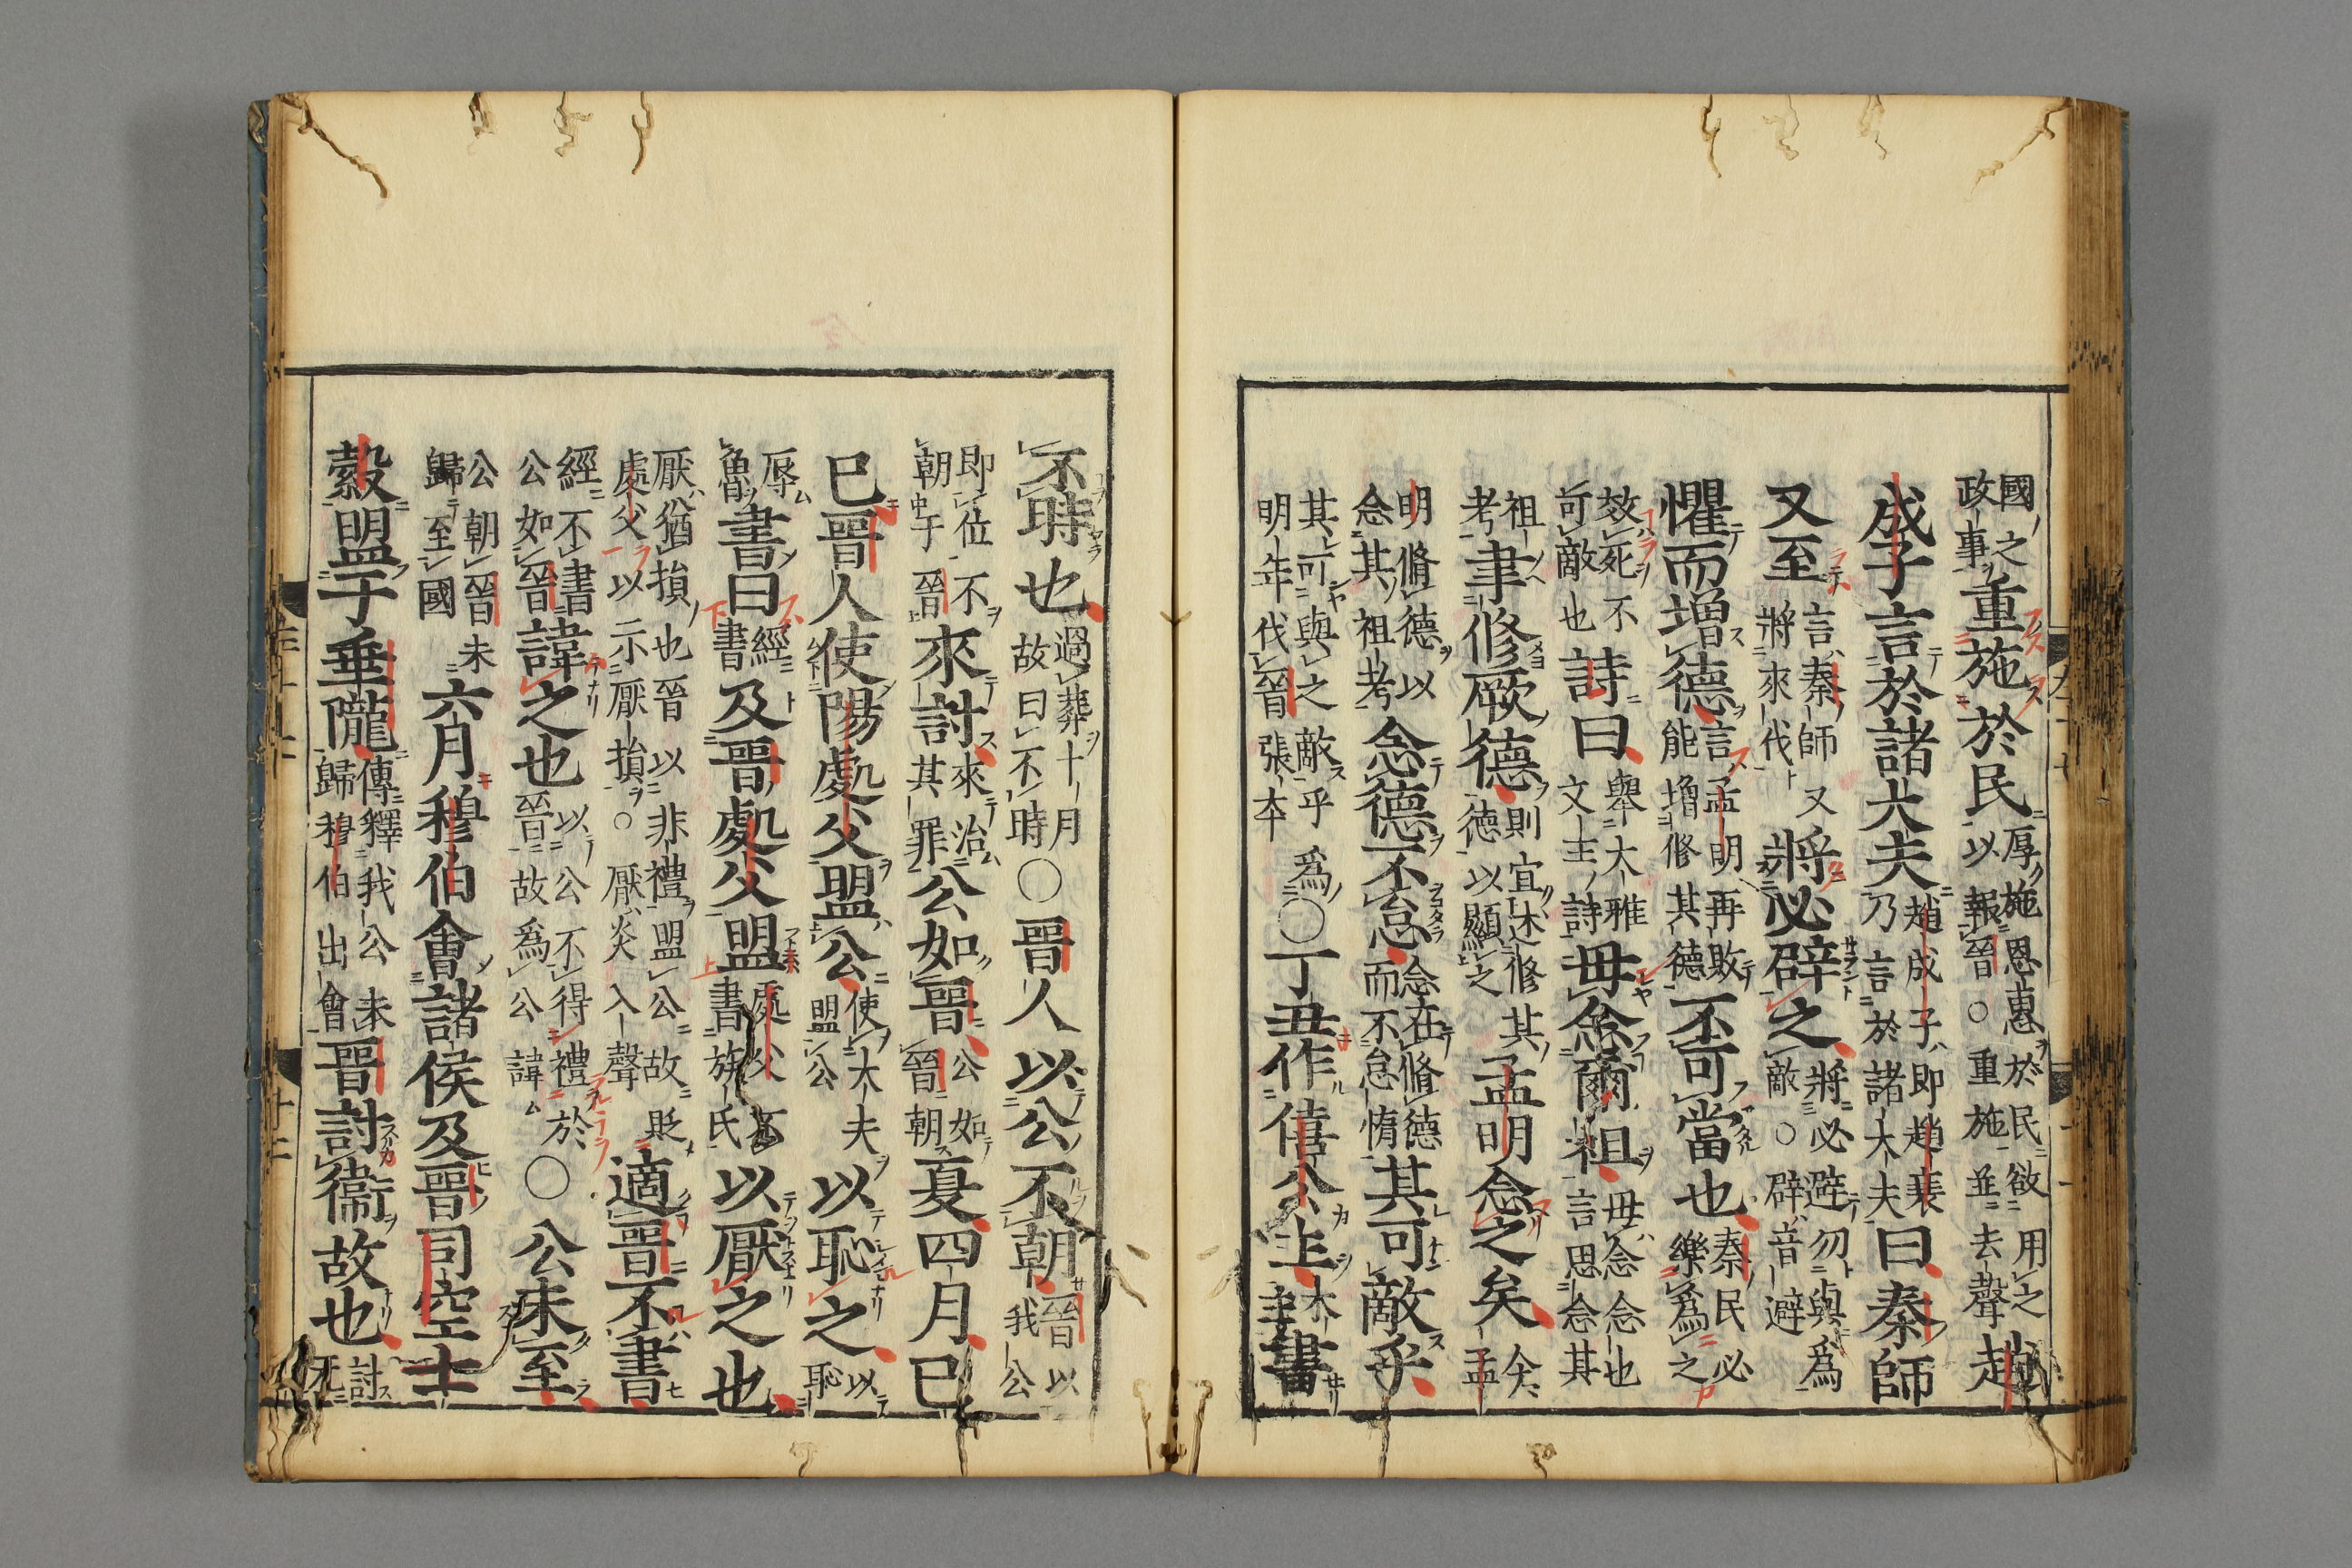 國之重施於民厚施恩惠於民欲用之趙
政事以報晉○重施並去聲
成子言於諸大夫趙成子即趙衰曰秦師
乃言於諸大夫
又至言秦師又將必辟之將必避勿與爲
將來伐敵○辟音避
懼而増德言孟明再敗不可當也秦民必
能増修其德樂爲之
效死不詩曰舉大雅毋念爾祖毋念念也
可敵也文王詩言思念其
祖聿修厥德則宜述修其孟明念之矣今
考德以顯之孟
明脩德以念德不怠念在脩德其可敵乎
念其祖考而不怠惰
其可與之敵乎爲○丁丑作僖公主書
明年伐晉張本
不時也過葬十月○晉人以公不朝晉以
故曰不時我公
即位不來討來治公如晉公如夏四月己
朝于晉其罪晉朝
巳晉人使陽處父盟公使大夫以恥之以
盟公恥
辱書曰經及晉處父盟處父以厭之也
魯書書族氏
厭猶損也晉以非禮盟公故貶適晉不書
處父以示厭損○厭炎入聲
經不書諱之也以公不得禮於○公未至
公如晉晉故爲公諱
公朝晉未六月穆伯會諸侯及晉司空士
歸至國
縠盟于垂隴傳釋我公未晉討衞故也討
歸穆伯出會